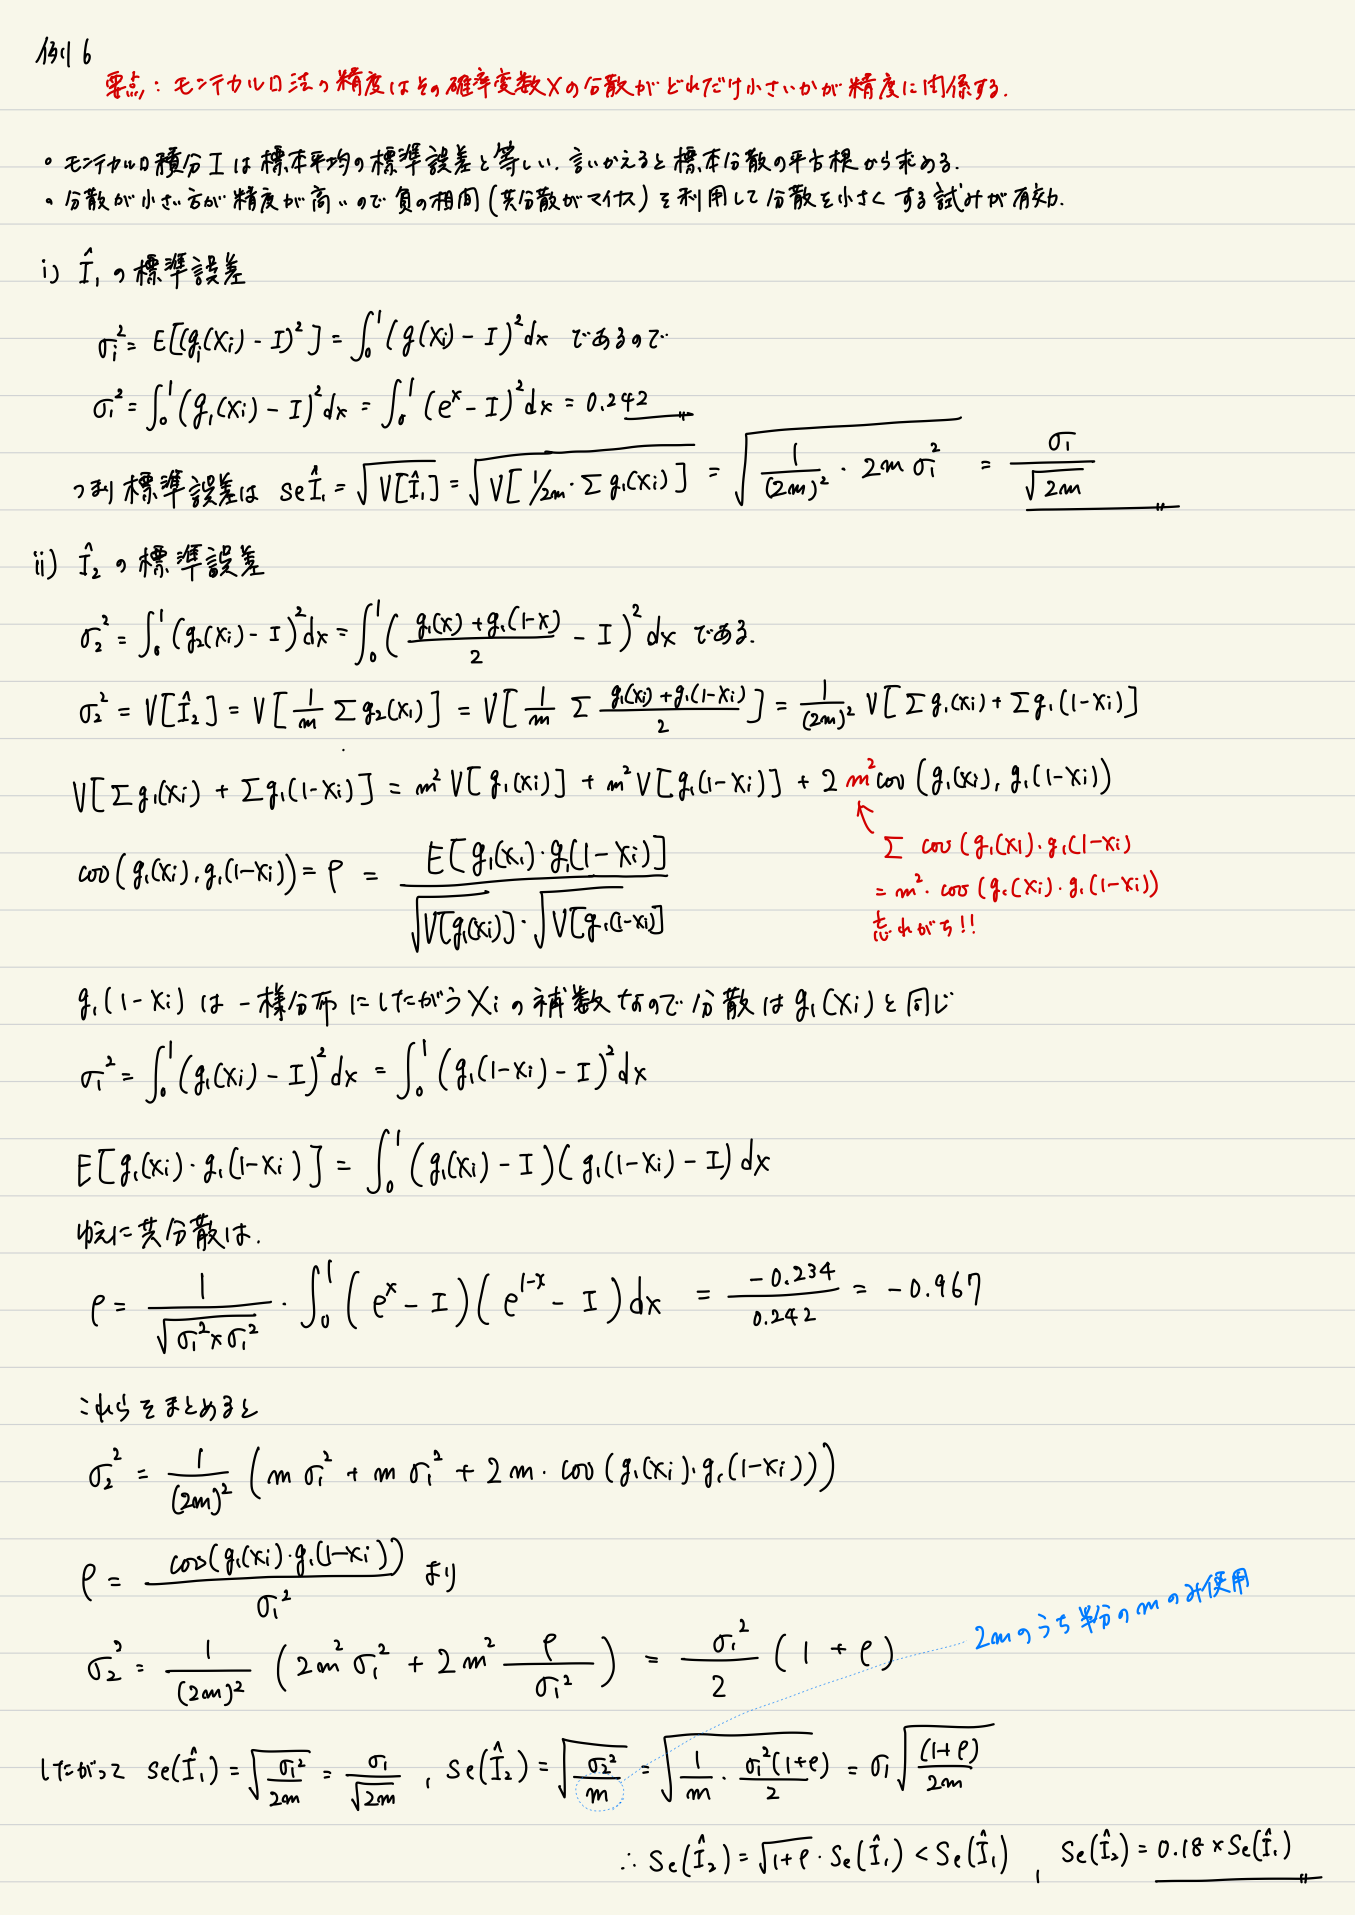 例 6
要点: モンテカルロ法の精度はその確率変数Xの分散がどれだけ小さいかが精度に関係する.
。モンテカルロ積分 I は標本平均の標準誤差と等しい. 言いかえると標本分散の平方根から求める.
。分散が小さい方が精度が高いので負の相関 (共分散がマイナス) を利用して分散を小さくする試みが有効.
i) Î₁ の標準誤差
σⱼ² = E[(gⱼ(Xi) - I)²] = ∫₀¹ (g(Xi) - I)² dx であるので
σ₁² = ∫₀¹ (g₁(Xi) - I)² dx = ∫₀¹ (eˣ - I)² dx = 0.242
つまり標準誤差は se Î₁ = √V[Î₁] = √V[1/2m · Σ g₁(Xi)] = √(1/(2m)² · 2m σ₁²) = σ₁/√2m
ii) Î₂ の標準誤差
σ₂² = ∫₀¹ (g₂(Xi) - I)² dx = ∫₀¹ ((g₁(x) + g₁(1-x))/2 - I)² dx である.
σ₂² = V[Î₂] = V[1/m Σ g₂(Xi)] = V[1/m Σ (g₁(Xi) + g₁(1-Xi))/2] = 1/(2m)² V[Σ g₁(Xi) + Σ g₁(1-Xi)]
V[Σ g₁(Xi) + Σ g₁(1-Xi)] = m² V[g₁(Xi)] + m² V[g₁(1-Xi)] + 2 m² cov(g₁(Xi), g₁(1-Xi))
Σ cov(g₁(Xi)·g₁(1-Xi)
= m²· cov(g₁(Xi)·g₁(1-Xi))
忘れがち!!
cov(g₁(Xi), g₁(1-Xi)) = ρ = E[g₁(Xi)·g₁(1-Xi)] / √V[g₁(Xi)]·√V[g₁(1-Xi)]
g₁(1-Xi) は一様分布にしたがう Xi の補数なので分散は g₁(Xi) と同じ
σ₁² = ∫₀¹ (g₁(Xi) - I)² dx = ∫₀¹ (g₁(1-Xi) - I)² dx
E[g₁(Xi)·g₁(1-Xi)] = ∫₀¹ (g₁(Xi) - I)(g₁(1-Xi) - I) dx
ゆえに共分散は.
ρ = 1/√(σ₁²×σ₁²) · ∫₀¹ (eˣ - I)(e¹⁻ˣ - I) dx = -0.234/0.242 = -0.967
これらをまとめると
σ₂² = 1/(2m)² (m σ₁² + m σ₁² + 2m· cov(g₁(Xi)·g₁(1-Xi)))
ρ = cov(g₁(Xi)·g₁(1-Xi)) / σ₁² より
2mのうち半分のmのみ使用
σ₂² = 1/(2m)² (2m² σ₁² + 2m² ρ/σ₁²) = σ₁²/2 (1 + ρ)
したがって Se(Î₁) = √(σ₁²/2m) = σ₁/√2m , Se(Î₂) = √(σ₂²/m) = √(1/m · σ₁²(1+ρ)/2) = σ₁√((1+ρ)/2m)
∴ Se(Î₂) = √1+ρ · Se(Î₁) < Se(Î₁) , Se(Î₂) = 0.18 × Se(Î₁)